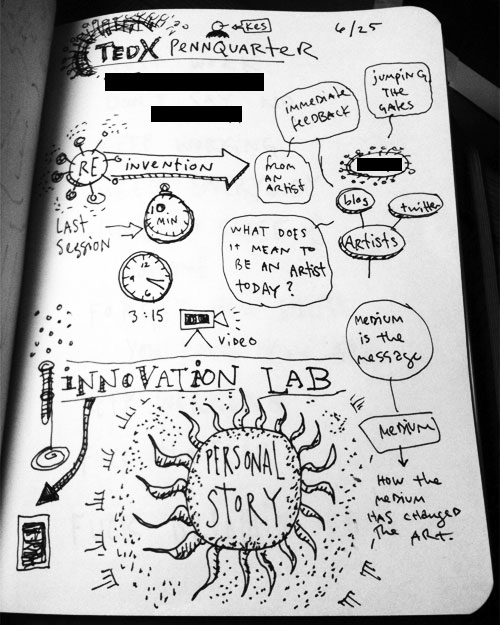 Kes
6/25
TEDX PENNQUARTER
jUMPiNG
THE
GATES
iMMEDiATE
FEEDBACK
RE iNVENTiON
FROM
AN
ARTiST
blog
twitter
Artists
10
MiN
LAST
SESSION
WHAT DOES
iT MEAN TO
BE AN ARTiST
TODAY?
12
3:15
ViDEO
MEDiUM
iS the
MESSAGE
INNOVATION LAB
MEDiUM
PERSONAL
STORY
HOW the
MEDiUM
HAS CHANGED
THE ART.